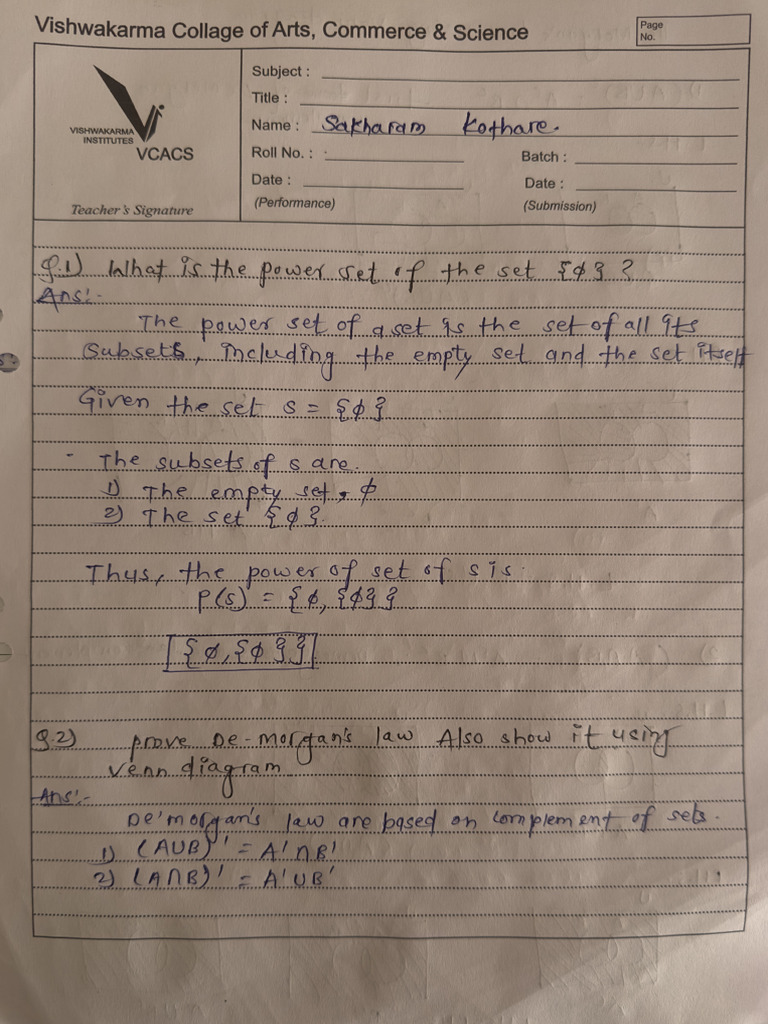 Vishwakarma Collage of Arts, Commerce & Science
Page
No.
VISHWAKARMA
INSTITUTES
VCACS
Teacher's Signature
Subject :
Title :
Name : Sakharam Kothare.
Roll No. :
Batch :
Date :
Date :
(Performance)
(Submission)
Q.1) What is the power set of the set {ϕ} ?
Ans:-
The power set of a set is the set of all its
subsets, including the empty set and the set itself
Given the set s = {ϕ}
- The subsets of s are.
1) The empty set, ϕ
2) The set {ϕ}.
Thus, the power of set of s is.
P(s) = {ϕ, {ϕ}}
{ϕ, {ϕ}}
Q.2) prove De-morgan's law Also show it using
venn diagram
Ans:-
De'morgan's law are based on complement of sets.
1) (A∪B)' = A'∩B'
2) (A∩B)' = A'∪B'